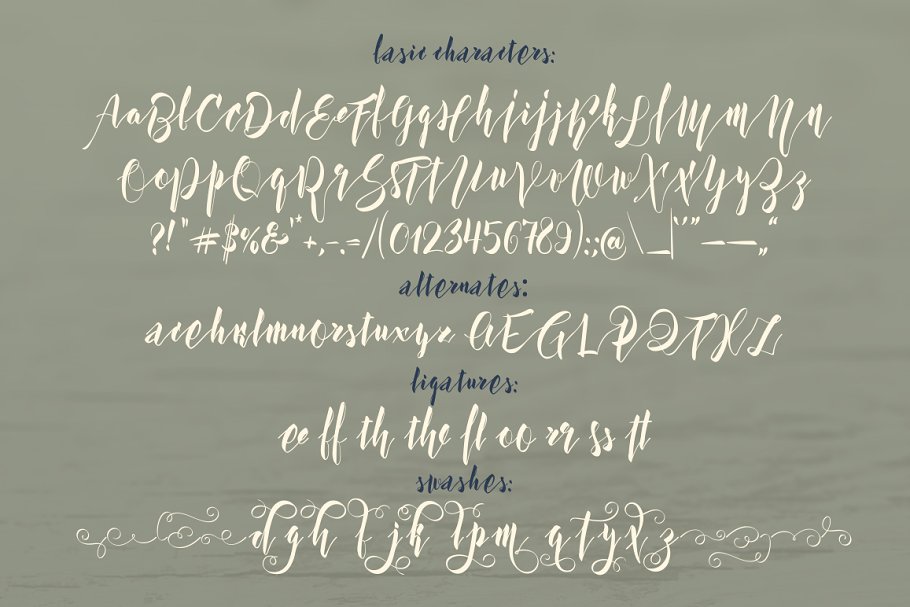 basic characters:
AaBbCcDdEeFfGgHhIiJjKkLlMmNn
OoPpQqRrSsTtUuVvWwXxYyZz
?!"#$%&'*+,-.=/(0123456789):;@\_|‘’”—–„“
alternates:
acehklmnorstuxyz AEGLPQTXZ
ligatures:
ee ff th the fl oo rr ss tt
swashes:
dghfjklpmqtyxz